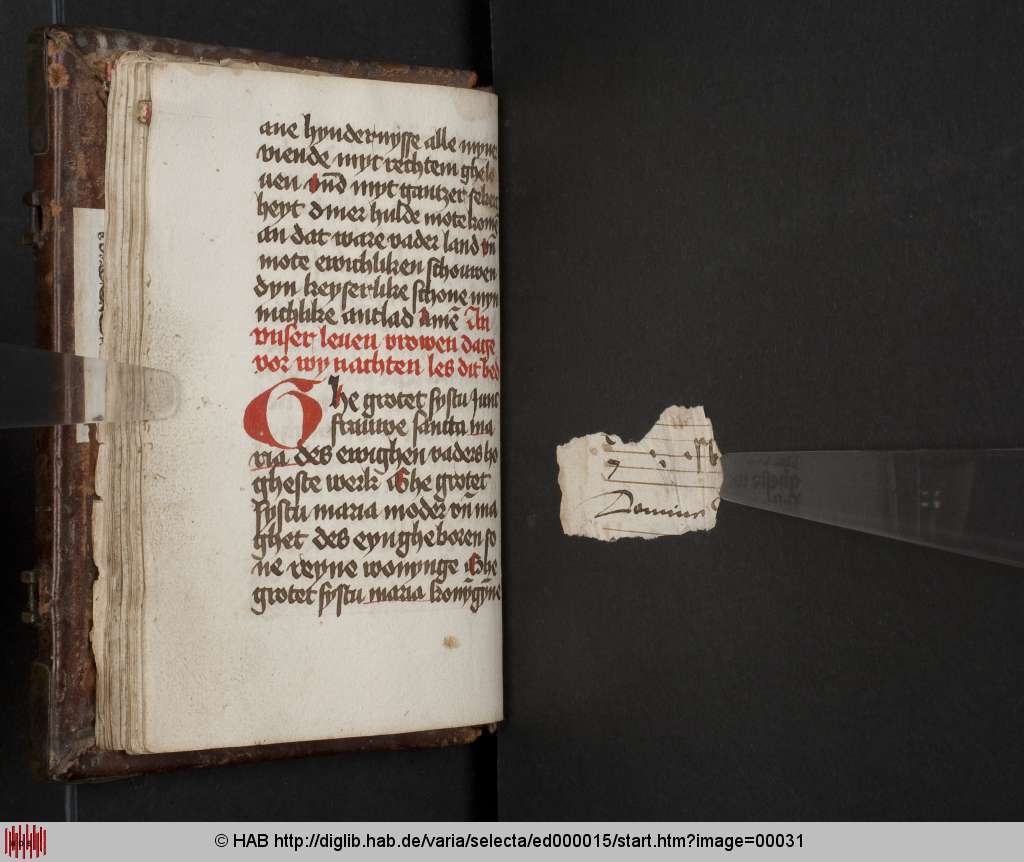 ane hyndernysse alle myne
viende myt rechtem ghelo
uen vnd myt gantzer seker
heyt diner hulde mote komē
an dat ware vader land vñ
mote ewichliken schouwen
dyn keyserlike schone myn
nichlike antlad Amē An
vnser leuen vrowen dage
vor wynachten les dit bed
Ghe grotet systu Junc
frauwe sancta ma
ria des ewighen vaders ho
gheste werk Ghe grotet
systu maria moder vñ ma
ghet des eyngheboren so
ne reyne wonynge Ghe
grotet systu maria konȳgȳne
Dominus
© HAB http://diglib.hab.de/varia/selecta/ed000015/start.htm?image=00031